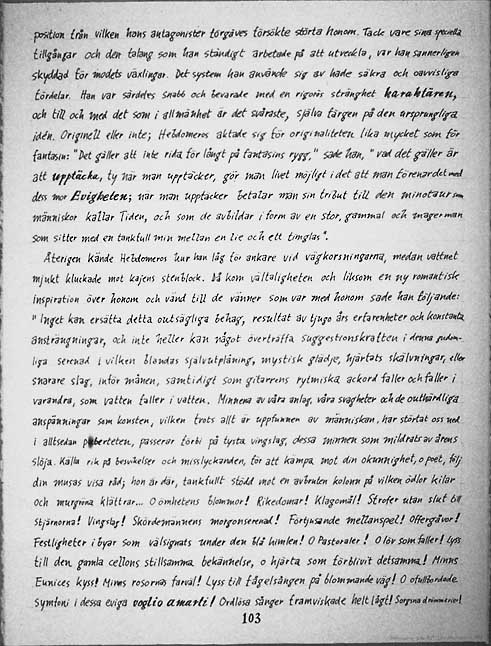 position från vilken hans antagonister förgäves försökte störta honom. Tack vare sina speciella
tillgångar och den talang som han ständigt arbetade på att utveckla, var han sannerligen
skyddad för modets växlingar. Det system han använde sig av hade säkra och oavvisliga
fördelar. Han var särdeles snabb och bevarade med en rigorös stränghet karaktären,
och till och med det som i allmänhet är det svåraste, själva färgen på den ursprungliga
idén. Originell eller inte; Hebdomeros aktade sig för originaliteten lika mycket som för
fantasin: "Det gäller att inte rida för långt på fantasins rygg," sade han, "vad det gäller är
att upptäcka, ty när man upptäcker, gör man livet möjligt i det att man förenar det med
dess mor Evigheten; när man upptäcker betalar man sin tribut till den minotaur som
människor kallar Tiden, och som de avbildar i form av en stor, gammal och mager man
som sitter med en tankfull min mellan en lie och ett timglas".
Återigen kände Hebdomeros hur han låg för ankare vid vägkorsningarna, medan vattnet
mjukt kluckade mot kajens stenblock. Då kom vältaligheten och liksom en ny romantisk
inspiration över honom och vänd till de vänner som var med honom sade han följande:
"Inget kan ersätta detta outsägliga behag, resultat av tjugo års erfarenheter och konstanta
ansträngningar, och inte heller kan något överträffa suggestionskraften i denna gudom-
liga serenad i vilken blandas självutplåning, mystisk glädje, hjärtats skälvningar, eller
snarare slag, inför månen, samtidigt som gitarrens rytmiska ackord faller och faller i
varandra, som vatten faller i vatten. Minnena av våra anlag, våra svagheter och de outhärdliga
anspänningar som konsten, vilken trots allt är uppfunnen av människan, har störtat oss ned
i alltsedan puberteten, passerar förbi på tysta vingslag, dessa minnen som mildrats av årens
slöja. Källa rik på besvikelser och misslyckanden, för att kämpa mot din okunnighet, o poet, följ
din musas visa råd; hon är där, tankfullt stödd mot en avbruten kolonn på vilken ödlor kilar
och murgröna klättrar... O ömhetens blommor! Rikedomar! Klagomål! Strofer utan slut till
Stjärnorna! Vingslag! Skördemännens morgonserenad! Förtjusande mellanspel! Offergåvor!
Festligheter i byar som välsignats under den blå himlen! O Pastoraler! O lör som faller! Lyss
till den gamla cellons stillsamma bekännelse, o hjärta som förblivit detsamma! Minns
Eunices kyss! Minns rosornas farväl! Lyss till fågelsången på blommande väg! O ofullbordade
Symfoni i dessa eviga voglio amarti! Ordlösa sånger framviskade helt lågt! Sorgsna drömmerier!
103